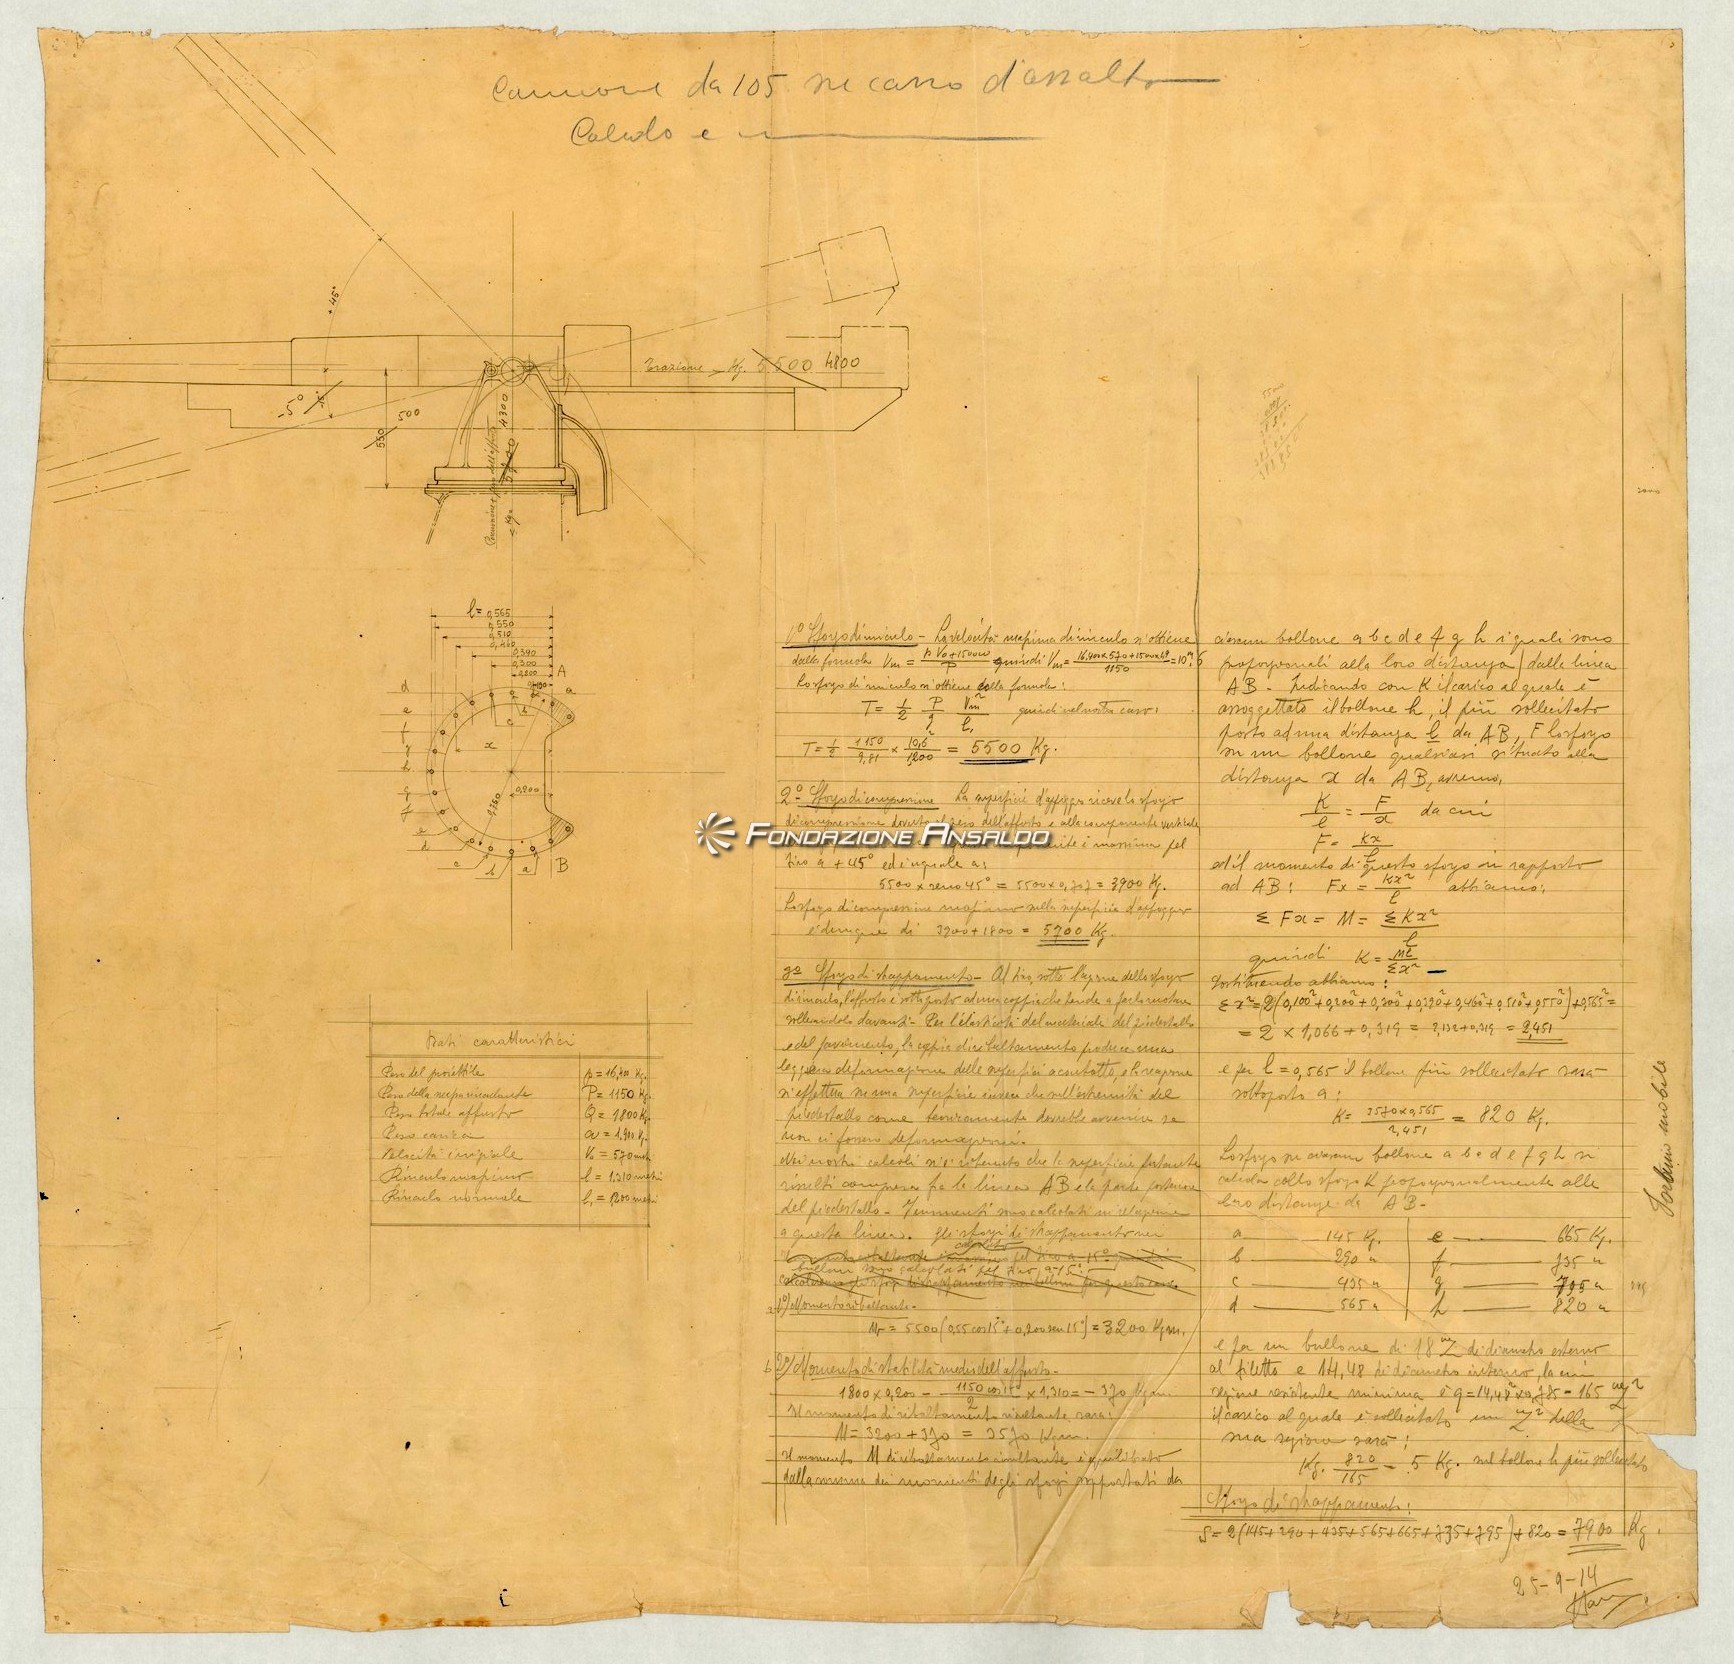 Cannone da 105 su carro d'assalto
Calcolo e
+45°
-5°
15°
Trazione Kg. 5500 4800
550
500
4300
l = 0,565
0,550
0,510
0,460
0,390
0,300
0,200
0,100
A
d
a
e
b
f
c
g
x
h
0,200
g
f
e
d
c
b
a
B
Dati caratteristici
Peso del proiettile p = 16,400 Kg.
Peso della massa rinculante P = 1150 Kg.
Peso totale affusto Q = 1800 Kg.
Peso carica
Velocità iniziale Vo = 570 metri
Rinculo massimo l = 1,310 metri
Rinculo normale l₁ = 1,200 metri
1° Sforzo di rinculo - La velocità massima di rinculo si ottiene
dalla formula Vm = (p Vo + 1500 ω) / P quindi Vm = = 10,6
Lo sforzo di rinculo si ottiene dalla formula:
T = 1/2 P/g Vm²/l₁ quindi nel nostro caso:
T = 1/2 1150/9,81 × 10,6²/1,200 = 5500 Kg.
2° Sforzo di compressione La superficie d'appoggio riceve lo sforzo
di compressione dovuto al peso dell'affusto e alla componente verticale
Fondazione Ansaldo
è massima pel
tiro a +45° ed è uguale a:
5500 × seno 45° = 5500 × 0,707 = 3900 Kg.
Lo sforzo di compressione massimo nella superficie d'appoggio
è dunque di 3900 + 1800 = 5700 Kg.
3° Sforzo di strappamento - Al tiro, sotto l'azione dello sforzo
di rinculo, l'affusto è sottoposto ad una coppia che tende a farlo ruotare
sollevandolo davanti - Per l'elasticità del materiale del piedestallo
e del pavimento, la coppia di ribaltamento produce una
leggera deformazione delle superfici a contatto, e la reazione
si effettua su una superficie invece che sull'estremità del
piedestallo come teoricamente dovrebbe avvenire se
non ci fossero deformazioni.
Nei nostri calcoli si è ritenuto che la superficie portante
risulti compresa fra la linea AB e la parte posteriore
del piedestallo - I momenti sono calcolati in relazione
a questa linea. Gli sforzi di strappamento sui
bulloni sono calcolati pel tiro a -15°
1°) Momento ribaltante -
Mr = 5500 (0,55 cos 15° + 0,200 sen 15°) = 3200 Kgm.
2°) Momento di stabilità medio dell'affusto -
1800 × 0,200 - (1150 cos 15°)/2 × 1,310 = - 370 Kgm.
Il momento di ribaltamento risultante sarà:
M = 3200 + 370 = 3570 Kgm.
Il momento M di ribaltamento risultante è equilibrato
dalla somma dei momenti degli sforzi sopportati da
ciascun bullone a b c d e f g h i quali sono
proporzionali alla loro distanza dalla linea
AB. Indicando con K il carico al quale è
assoggettato il bullone h, il più sollecitato
posto ad una distanza l da AB, F lo sforzo
su un bullone qualsiasi situato alla
distanza x da AB, avremo,
K/l = F/x da cui
F = Kx/l
ed il momento di questo sforzo in rapporto
ad AB: Fx = Kx²/l abbiamo:
Σ Fx = M = Σ Kx²/l
quindi K = Ml/Σx²
Sostituendo abbiamo:
Σ x² = 2(0,100² + 0,200² + 0,300² + 0,390² + 0,460² + 0,510² + 0,550²) + 0,565² =
= 2 × 1,066 + 0,319 = 2,132 + 0,319 = 2,451
e per l = 0,565 il bullone più sollecitato sarà
sottoposto a:
K = (3570 × 0,565)/2,451 = 820 Kg.
Lo sforzo su ciascun bullone a b c d e f g h si
calcola collo sforzo K proporzionalmente alle
loro distanze da AB -
a 145 Kg. e 665 Kg.
b 290 " f 735 "
c 435 " g 795 "
d 565 " h 820 "
e per un bullone di 18 m/m di diametro esterno
al filetto e 14,48 di diametro interno, la cui
sezione resistente minima è q = 14,48² × 0,785 = 165 m/m²
il carico al quale è sollecitato un m/m² della
sua sezione sarà:
Kg. 820/165 = 5 Kg. sul bullone h più sollecitato
Sforzo di strappamento:
S = 2(145 + 290 + 435 + 565 + 665 + 735 + 795) + 820 = 7900 Kg.
25-9-14